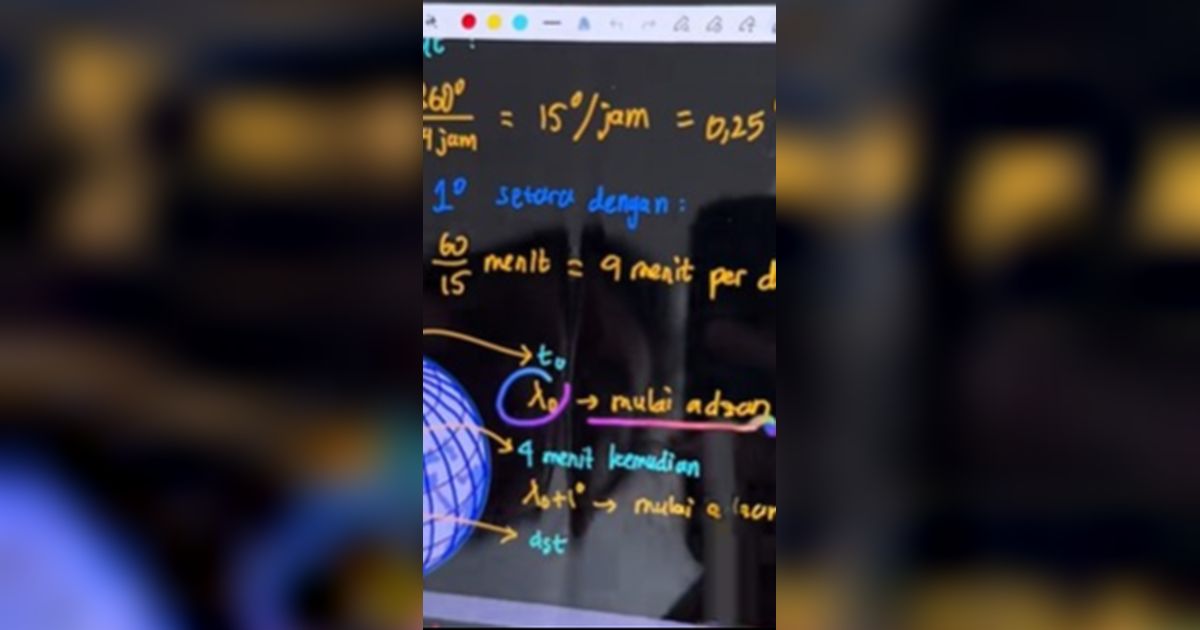 360°
4 jam
= 15°/jam = 0,25
1° setara dengan :
60
15
menit = 4 menit per d
t₀
λ₀ → mulai adzan
4 menit kemudian
λ₀+1° → mulai adzan
dst